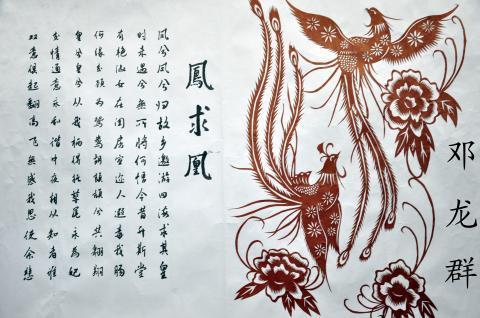 鳳求凰
凤兮凤兮归故乡遨游四海求其皇
时未遇兮無所将何悟今昔升斯堂
有艳淑女在闺房室迩人遐毒我肠
何缘交颈为鸳鸯胡颉颃兮共翱翔
皇兮皇兮从我栖得托孳尾永为妃
交情通意心和谐中夜相从知者谁
双意俱起翻高飞無感我思使余悲
邓龙群